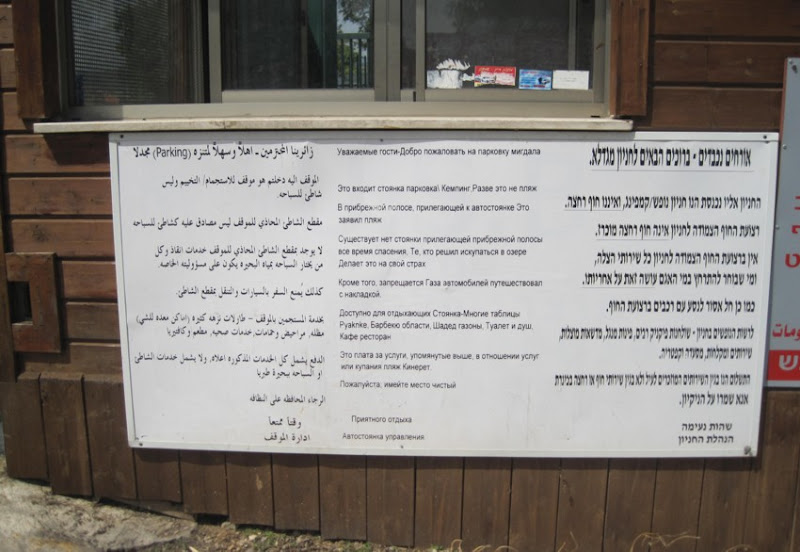 زائرينا المحترمين - اهلاً وسهلاً لمتنزه (Parking) مجدلا
الموقف اليه دخلتم هو موقف للاستجمام/ التخييم وليس
شاطئ للسباحه.
مقطع الشاطئ المحاذي للموقف ليس مصادق عليه كشاطئ للسباحه
لا يوجد بمقطع الشاطئ المحاذي للموقف خدمات انقاذ وكل
من يختار السباحه بمياه البحيره يكون على مسؤوليته الخاصه
كذلك يُمنع السفر بالسيارات والتنقل بمقطع الشاطئ.
بخدمة المستجمين بالموقف - طاولات نزهه كثيره (اماكن معده للشي)
مظله, مراحيض وحمامات, خدمات صحيه, مطعم وكافتيريا
الدفع يشمل كل الخدمات المذكوره اعلاه, ولا يشمل خدمات الشاطئ
او السباحه ببحيرة طبريا
الرجاء المحافظه على النظافه
وقتا ممتعا
ادارة الموقف
Уважаемые гости-Добро пожаловать на парковку мигдала
Это входит стоянка парковка\ Кемпинг,Разве это не пляж
В прибрежной полосе, прилегающей к автостоянке Это
заявил пляж
Существует нет стоянки прилегающей прибрежной полосы
все время спасения. Те, кто решил искупаться в озере
Делает это на свой страх.
Кроме того, запрещается Газа автомобилей путешествовал
с накладкой.
Доступно для отдыхающих Стоянка-Многие таблицы
Pyaknke, Барбекю области, Шадед газоны, Туалет и душ,
Кафе ресторан
Это плата за услуги, упомянутые выше, в отношении услуг
или купания пляж Кинерет.
Пожалуйста, имейте место чистый
Приятного отдыха
Автостоянка управления
אורחים נכבדים - ברוכים הבאים לחניון מגדלא.
החניון אליו נכנסת הנו חניון נופש/קמפינג, ואיננו חוף רחצה.
רצועת החוף הצמודה לחניון אינה חוף רחצה מוכרז.
אין ברצועת החוף הצמודה לחניון כל שירותי הצלה,
ומי שבוחר להתרחץ במי האגם עושה זאת על אחריותו.
כמו כן חל אסור לנסוע עם רכבים ברצועת החוף.
לרשות הנופשים בחניון - שולחנות פיקניק רבים, פינות מנגל, מדשאות מוצלות,
שירותים ומקלחות, מסעדה וקפטריה.
התשלום הנו בגין השירותים המוזכרים לעיל ולא בגין שירותי חוף או רחצה בכינרת
אנא שמרו על הניקיון.
שהות נעימה
הנהלת החניון